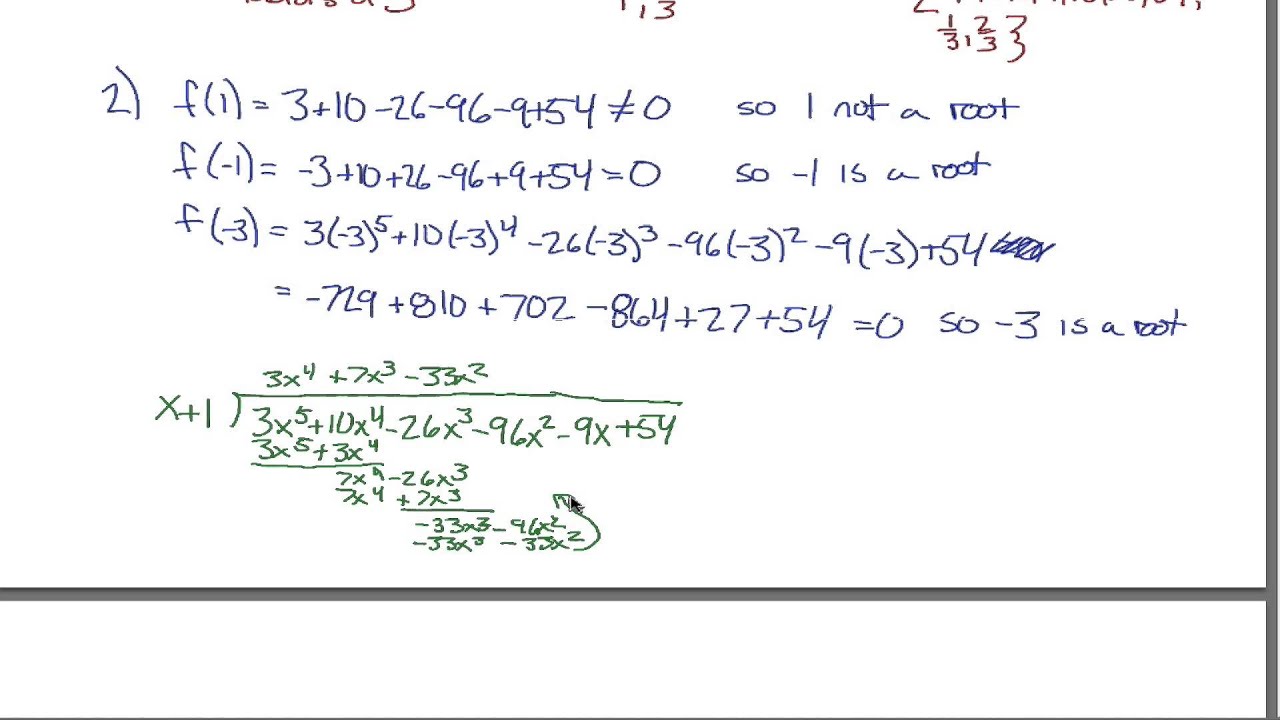 1, 3
1/3, 2/3 }
2) f(1) = 3+10-26-96-9+54 ≠ 0 so 1 not a root
f(-1) = -3+10+26-96+9+54 = 0 so -1 is a root
f(-3) = 3(-3)⁵+10(-3)⁴-26(-3)³-96(-3)²-9(-3)+54
= -729+810+702-864+27+54 = 0 so -3 is a root
3x⁴+7x³-33x²
x+1 ) 3x⁵+10x⁴-26x³-96x²-9x+54
3x⁵+3x⁴
7x⁴-26x³
7x⁴+7x³
-33x³-96x²
-33x³-33x²